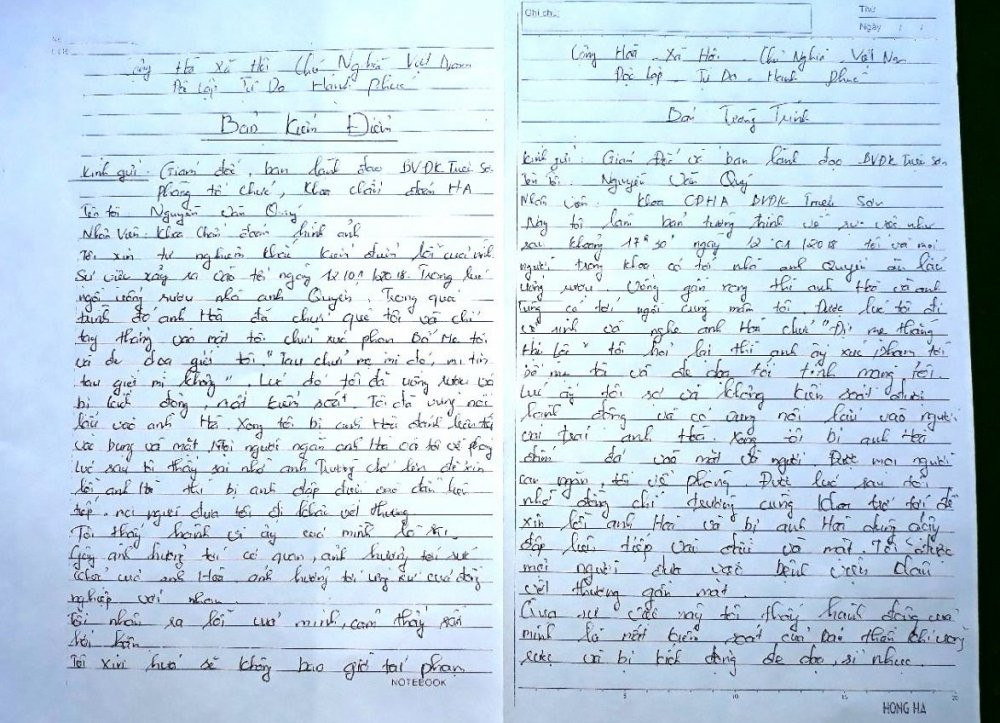 Cộng Hoà Xã Hôi Chủ Nghĩa Việt Nam
Độc Lập Tự Do Hành Phúc
Bản Kiểm Điểm
Kính gửi: Giám đốc, ban lãnh đạo BVĐK Triệu Sơn
Phòng tổ chức, khoa chẩn đoán HA
Tên tôi Nguyễn Văn Quý
Nhân Viên: Khoa Chẩn đoán hình ảnh
Tôi xin tự nghiêm khắc kiểm điểm lỗi của mình
Sự việc xảy ra vào tối ngày 12/01/2018. Trong lúc
ngồi uống rượu nhà anh Quyên. Trong quá
trình đó anh Hoà đã chửi quê tôi và chỉ
tay thẳng vào mặt tôi chửi xúc phạm Bố Mẹ tôi
và đe doạ giết tôi. "Tau chửi mẹ mi đó, mi tin
tau giết mi không". Lúc đó tôi đã uống rượu và
bị kích động, mất kiểm soát. Tôi đã vung nồi
lẩu vào anh Hoà. Xong tôi bị anh Hoà đánh liên tiếp
vào bụng và mặt. Mọi người ngăn anh Hoà và tôi về phòng
lúc sau tôi thấy sai nhờ anh Trường chở lên để xin
lỗi anh Hoà thì bị anh đập dưới liên
tiếp. mọi người đưa tôi đi khâu vết thương
Tôi thấy hành vi ấy của mình là sai.
Gây ảnh hưởng tới cơ quan, ảnh hưởng tới sức
khoẻ của anh Hoà ảnh hưởng tới ứng xử của đồng
nghiệp với nhau.
Tôi nhận ra lỗi của mình, cảm thấy
hối hận.
Tôi xin hứa sẽ không bao giờ tái phạm
NOTEBOOK
Ghi chú:
Thứ
Ngày / /
Cộng Hoà Xã Hôi Chủ Nghĩa Việt Nam
Độc Lập Tự Do Hành Phúc
Bản Tường Trình
Kính gửi: Giám Đốc và ban lãnh đạo BVĐK Triệu Sơn
Tên tôi: Nguyễn Văn Quý
Nhân viên: Khoa CĐHA BVĐK Triệu Sơn
Nay tôi làm bản tường trình về sự việc như
sau khoảng ngày 12/01/2018 tôi và mọi
người trong khoa có tới nhà anh Quyên ăn lẩu
uống rượu. Uống gần xong thì anh Hoà và anh
Tung có tới ngồi cùng mâm tôi. Được lúc tôi đi
vệ sinh và nghe anh Hoà chửi "Đ. mẹ thằng
" tôi hỏi lại thì anh ấy xúc phạm tới
bố mẹ tôi và đe doạ tới tính mạng tôi.
Lúc ấy tôi sợ và không kiểm soát được
hành động và có vung nồi lẩu vào người
anh Hoà. Xong tôi bị anh Hoà
đấm đá vào mặt và người. Được mọi người
can ngăn, tôi về phòng. Được lúc sau tôi
nhờ đồng chí Trường cùng khoa tới để
xin lỗi anh Hoà và bị anh Hoà dùng
đập liên tiếp vào đầu và mặt. Tôi được
mọi người đưa vào bệnh viện
vết thương gần mặt.
Qua sự việc này tôi thấy hành động của
mình là mất kiểm soát của bản thân khi uống
rượu và bị kích động đe doạ, sỉ nhục.
5 10 15 20
HONG HA